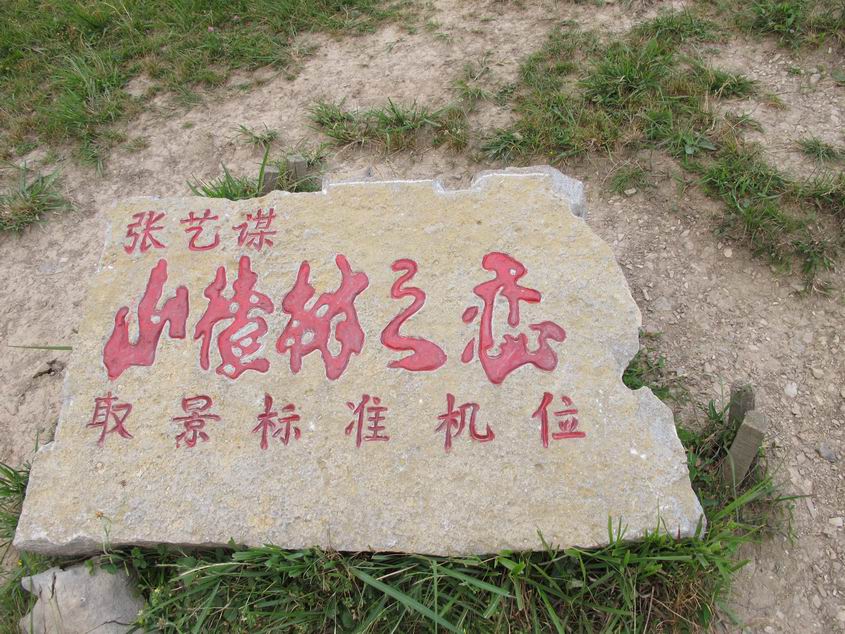 张艺谋
山楂树之恋
取景标准机位